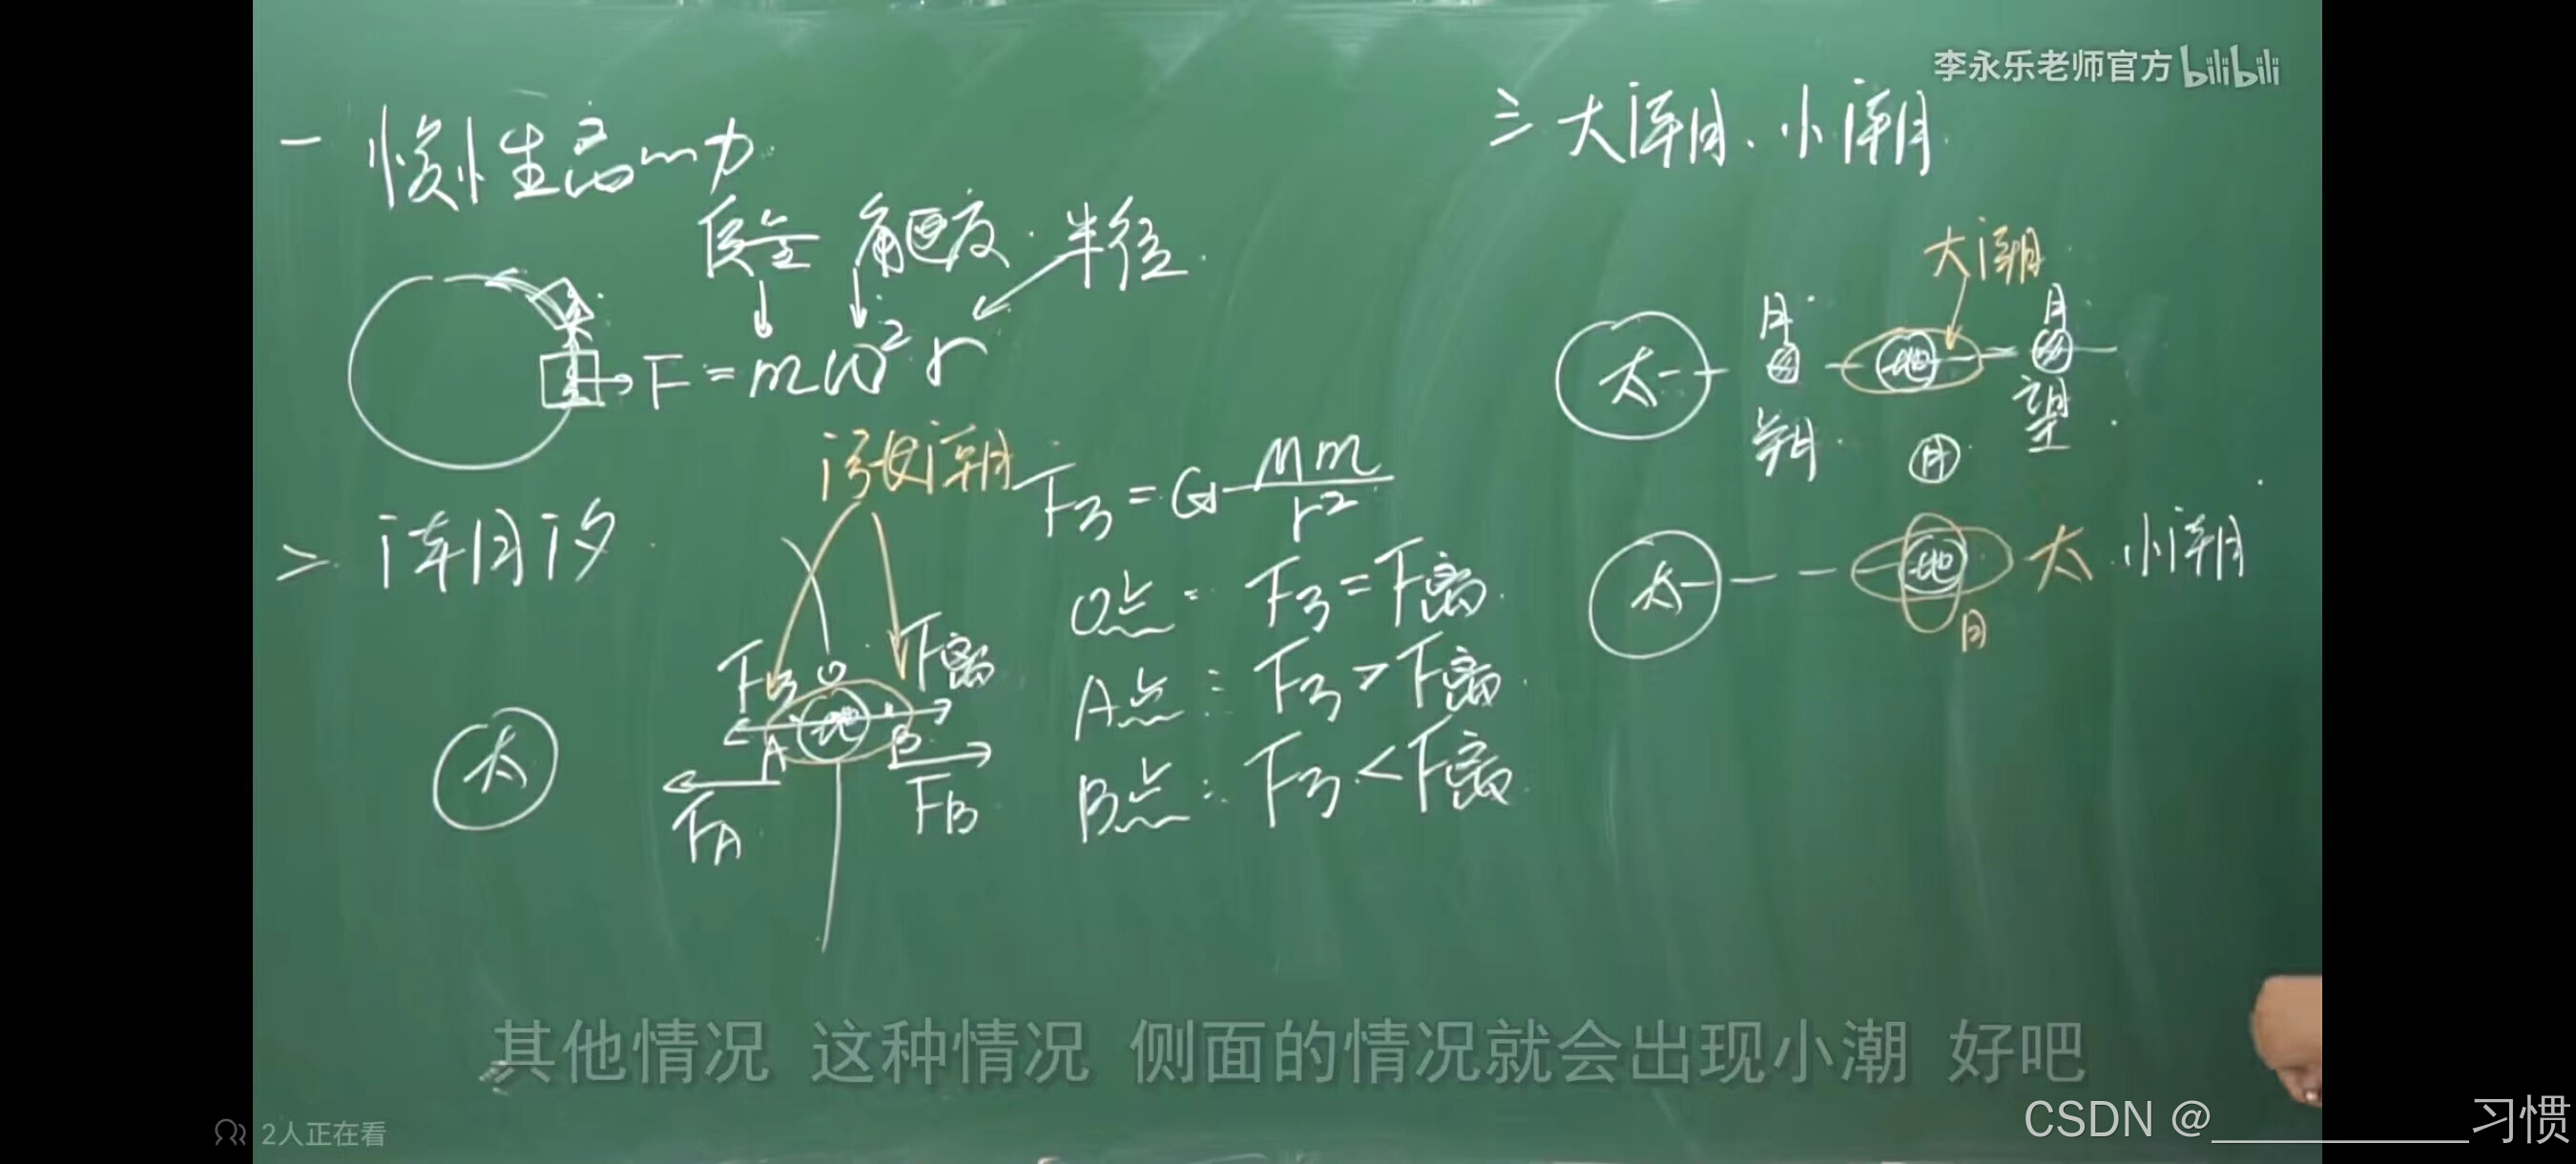 李永乐老师官方 bilibili
一 惯性离心力
质量 角速度 半径
F = mω²r
二 潮汐
涨潮
F引 = G Mm/r²
O点: F引 = F离
A点: F引 > F离
B点: F引 < F离
F引 O F离
太 A 地 B
FA FB
三 大潮、小潮
大潮
月 月
太 地
朔 月 望
太 地 太 小潮
月
其他情况 这种情况 侧面的情况就会出现小潮 好吧
2人正在看
CSDN @___________习惯